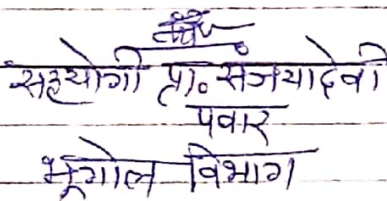 सहयोगी प्रा. संजयादेवी
पवार
भूगोल विभाग